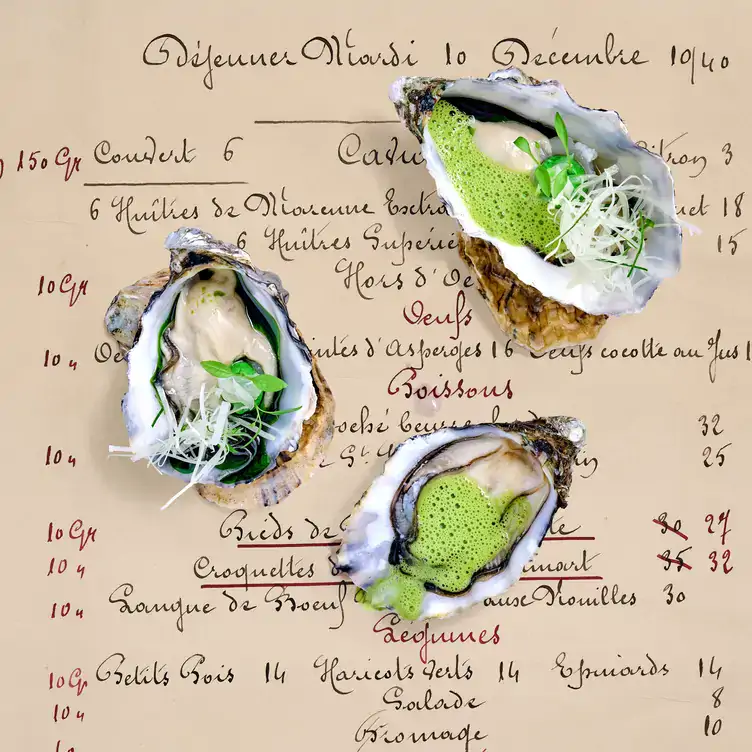 Déjeuner Mardi 10 Décembre 1940
150 Gr Couvert 6 Citron 3
6 Huîtres de Marenne Extra 18
6 Huîtres Supérie 15
Hors d'Oe
10 Gr
Oeufs
10 " Oe intes d'Asperges 16 Oeufs cocotte au Jus 1
Boissons
oché beurre 32
10 " St 25
10 Gr Pieds de le 30 27
10 " Croquettes 35 32
10 " Langue de Boeuf Nouilles 30
Légumes
10 Gr Petits Pois 14 Haricots Verts 14 Epinards 14
10 " Salade 8
Fromage 10